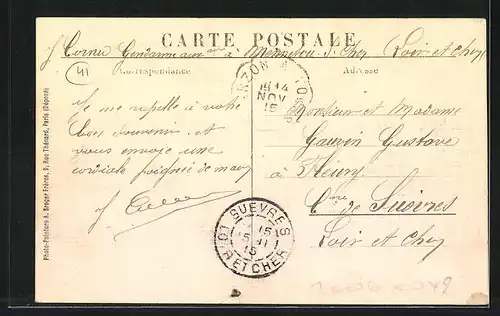 CARTE POSTALE
J. Cornu Gendarme aux. à Mennetou s. Cher Loir et Cher
41
Correspondance
Adresse
RZON
14
NOV
15
Je me rappelle à votre
bon souvenir et
vous envoie une
cordiale poignée de main
Monsieur et Madame
Gauvin Gustave
à Fleury
Cne de Suèvres
Loir et Cher
SUEVRES
15
15 11
15
LOIR ET CHER
Photo-Peinture A. Breger Frères, 9, Rue Thénard, Paris (Déposé)